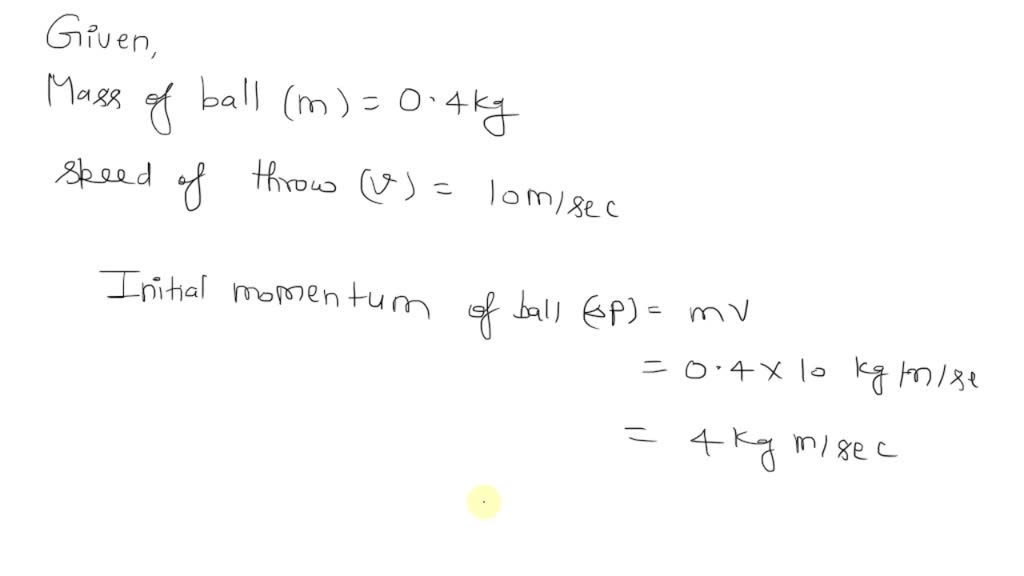 Given,
Mass of ball (m) = 0.4 kg
speed of throw (v) = 10 m/sec
Initial momentum of ball (ΔP) = mv
= 0.4 × 10 kg m/se
= 4 kg m/sec